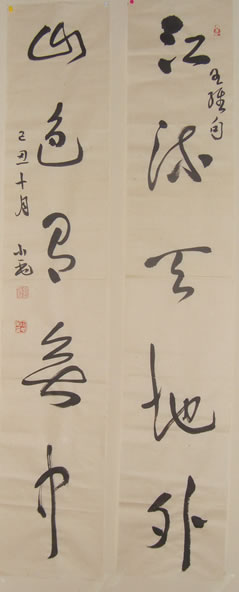 江流天地外
王維句
山色有無中
己丑十月